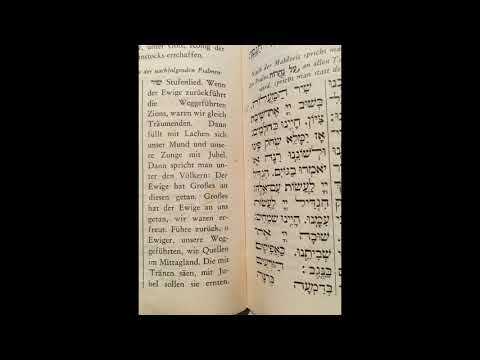 unser Gott, König der
nstocks erschaffen.
e der nachfolgenden Psalmen
שיר Stufenlied. Wenn
der Ewige zurückführt
die Weggeführten
Zions, waren wir gleich
Träumenden. Dann
füllt mit Lachen sich
unser Mund und unsere
Zunge mit Jubel.
Dann spricht man unter
den Völkern: Der
Ewige hat Großes an
diesen getan. Großes
hat der Ewige an uns
getan, wir waren erfreut.
Führe zurück, o
Ewiger, unsere Weggeführten,
wie Quellen
im Mittagland. Die mit
Tränen säen, mit Jubel
sollen sie ernten.
Nach der Mahlzeit spricht man
Psalm על נהרות an allen T
wird, spricht man statt de
שִׁיר הַמַּעֲלוֹת
בְּשׁוּב יְיָ אֶת־שִׁיבַת
צִיּוֹן הָיִינוּ כְּחֹלְמִים:
אָז יִמָּלֵא שְׂחוֹק פִּינוּ
וּלְשׁוֹנֵנוּ רִנָּה אָז
יֹאמְרוּ בַגּוֹיִם הִגְדִּיל
יְיָ לַעֲשׂוֹת עִם־אֵלֶּה:
הִגְדִּיל יְיָ לַעֲשׂוֹת
עִמָּנוּ הָיִינוּ שְׂמֵחִים:
שׁוּבָה יְיָ אֶת־
שְׁבִיתֵנוּ כַּאֲפִיקִים
בַּנֶּגֶב: הַזֹּרְעִים
בְּדִמְעָה בְּרִנָּה